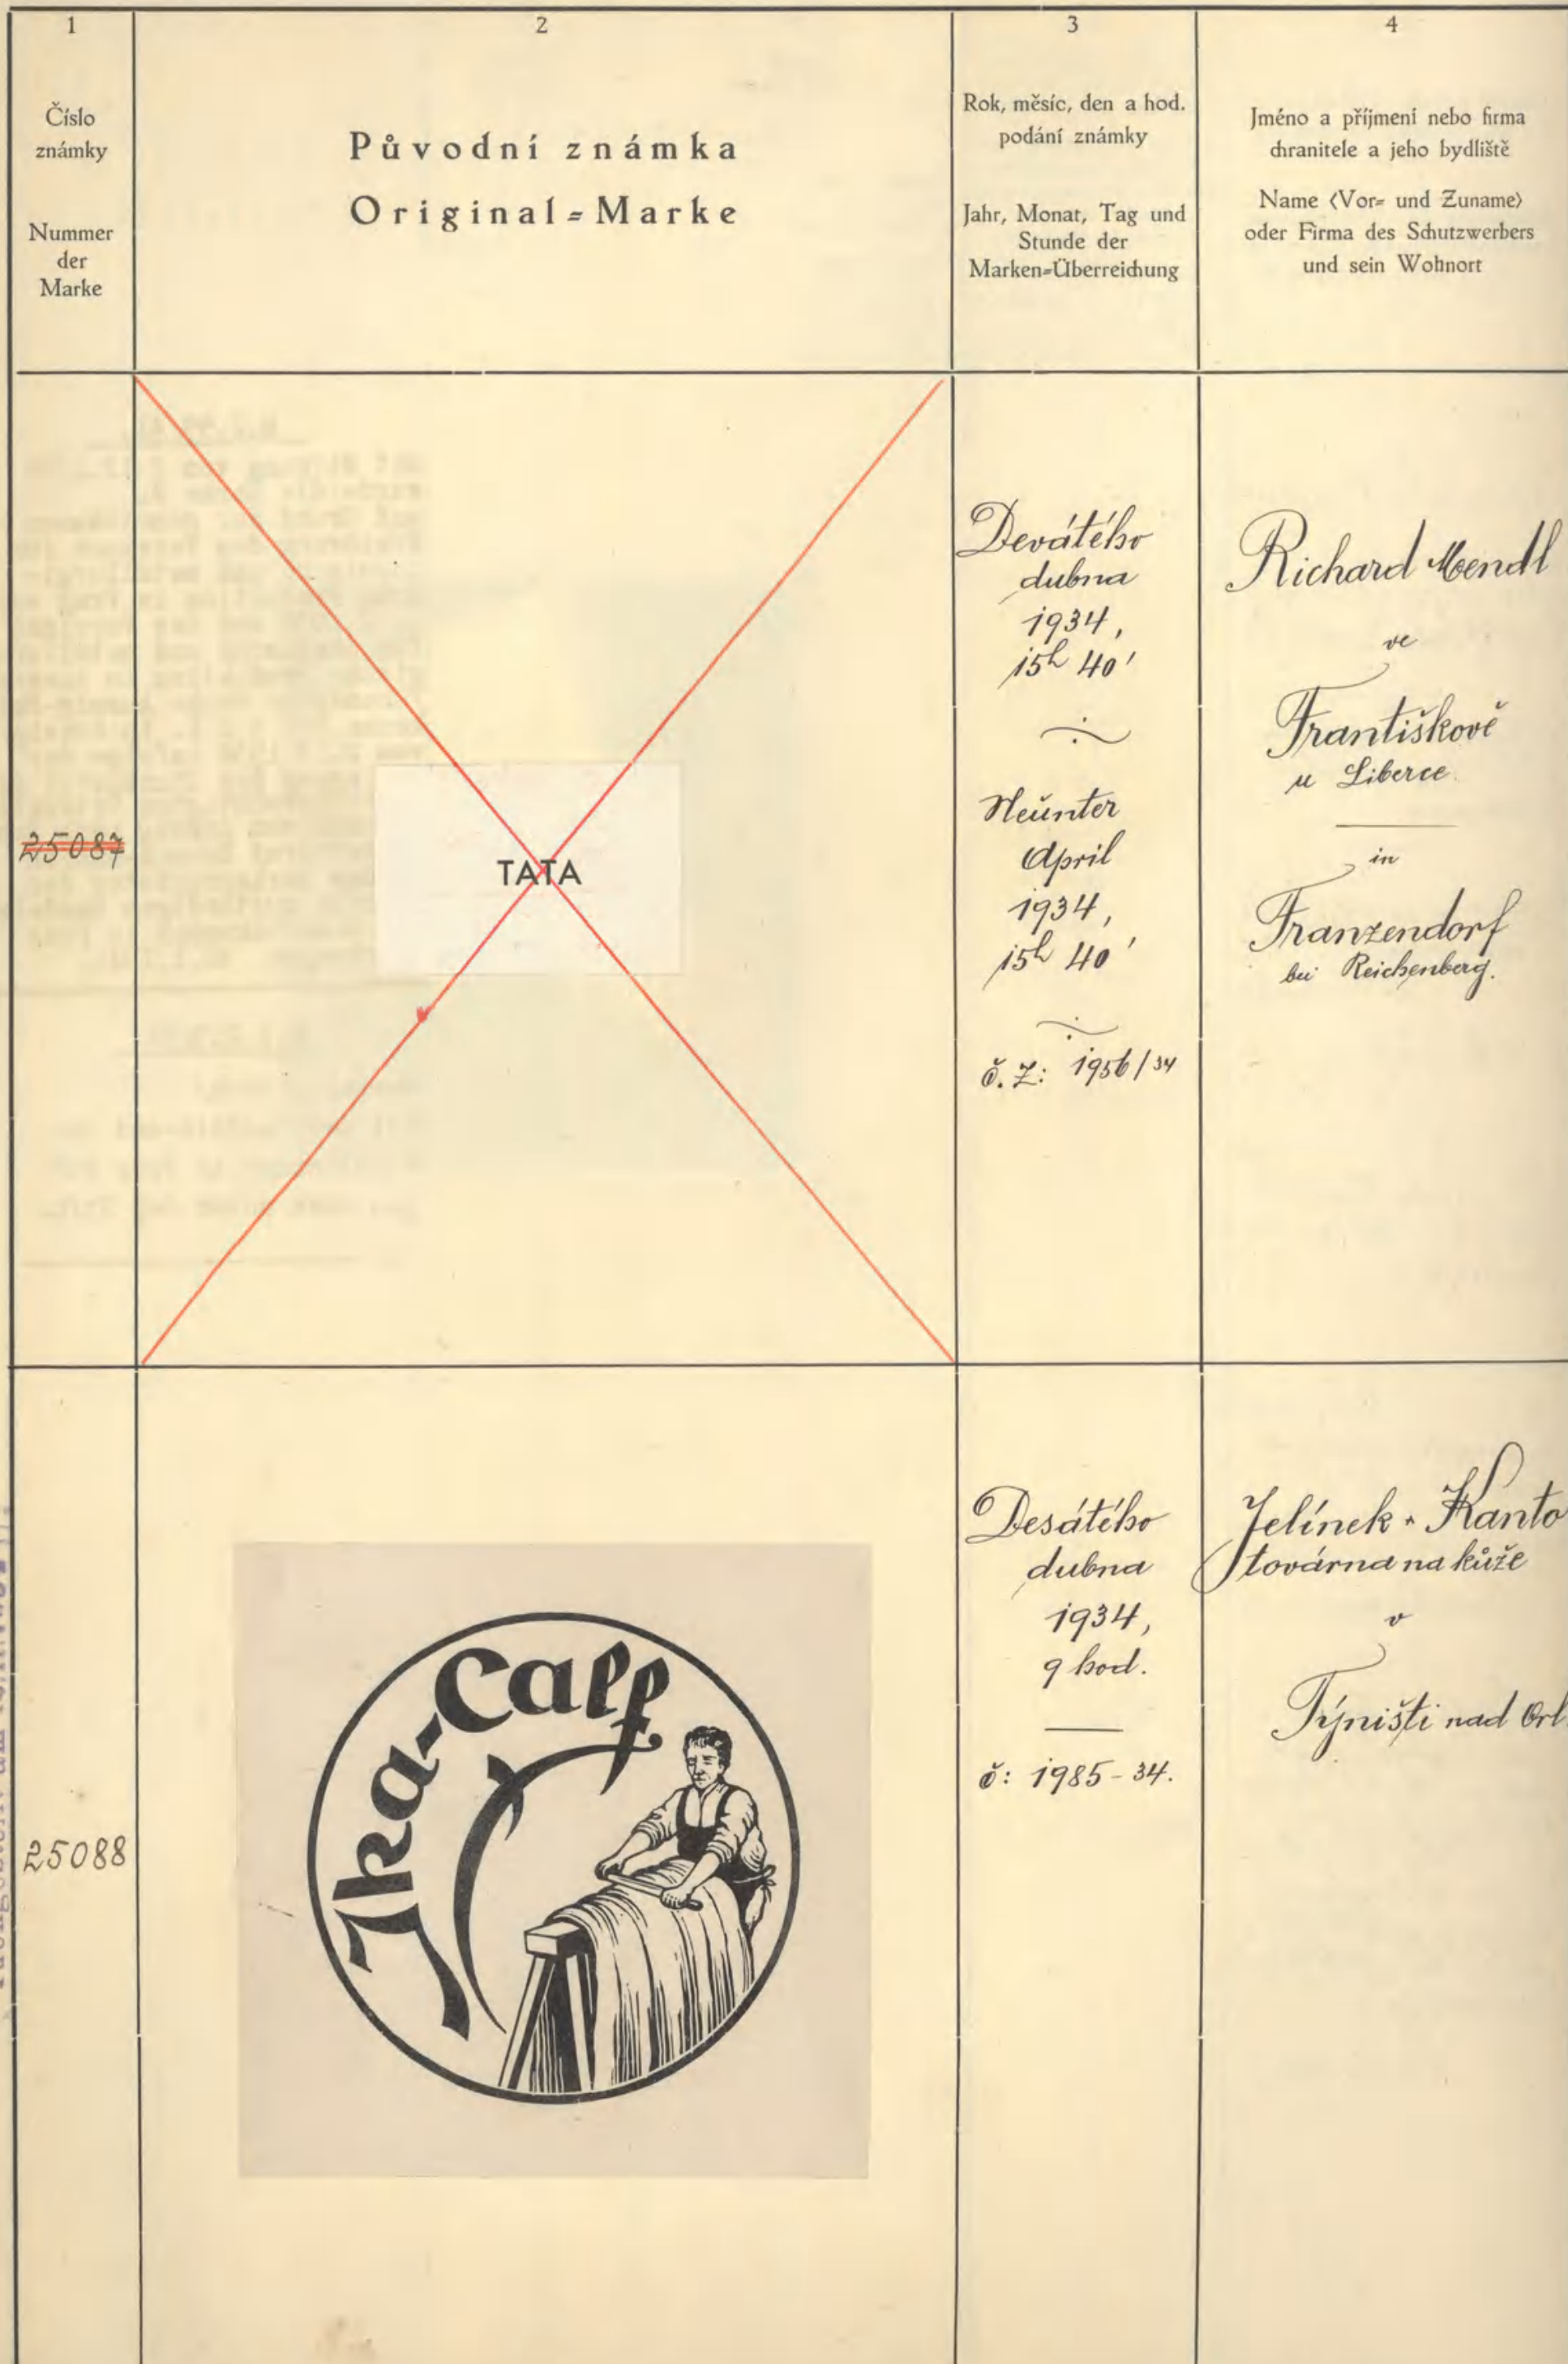 1
2
3
4
Číslo
známky
Nummer
der
Marke
Původní známka
Original=Marke
Rok, měsíc, den a hod.
podání známky
Jahr, Monat, Tag und
Stunde der
Marken=Überreichung
Jméno a příjmení nebo firma
chranitele a jeho bydliště
Name (Vor= und Zuname)
oder Firma des Schutzwerbers
und sein Wohnort
25087
TATA
Devátého
dubna
1934,
15h 40'
Neunter
April
1934,
15h 40'
č. Z: 1956/34
Richard Mendl
ve
Františkově
u Liberce
in
Franzendorf
bei Reichenberg.
25088
Jka-Calf
Desátého
dubna
1934,
9 hod.
č: 1985-34.
Jelínek * Kanto
továrna na kůže
v
Týništi nad Orl